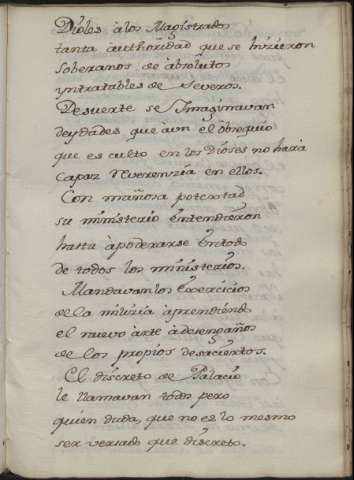 Dioles à los Magistrados
tanta àuthoridad que se hizieron
soberanos de àbsolutos
yntratables de severos.
Desuerte se Imaginavan
deydades que àun el obsequio
que es culto en los Dioses no haria
capaz reverenzia en ellos.
Con mañosa potestad
su ministerio èntendieron
hasta àpoderarse èntodo
de todos los ministerios.
Mandavan los Exercicios
de la milizia àprendiendo
el nuevo àrte à desengaños
de los propios desaciertos.
El discreto de Palacio
le llamavan todos pero
quien duda, que no es lo mesmo
ser versado que discreto.